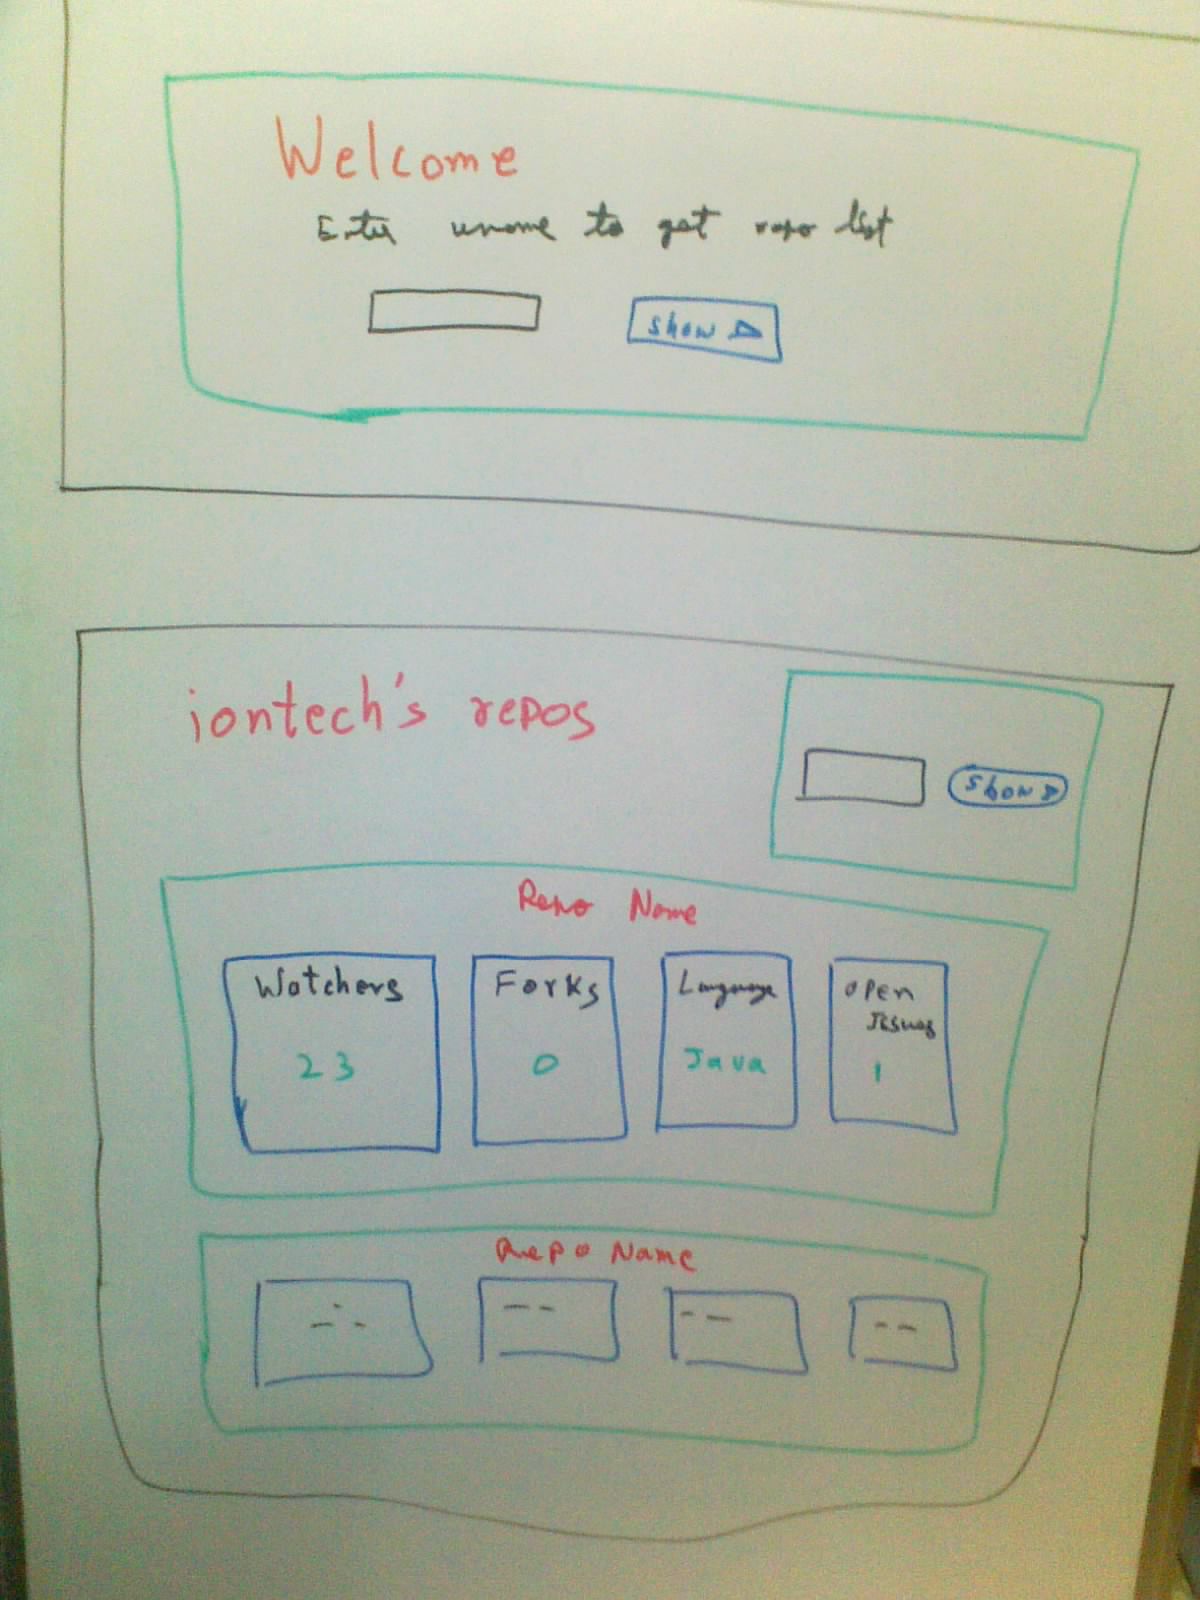 Welcome
Enter uname to get repo list
Show
iontech's repos
Show
Repo Name
Watchers
23
Forks
0
Language
Java
Open
Issues
1
Repo Name